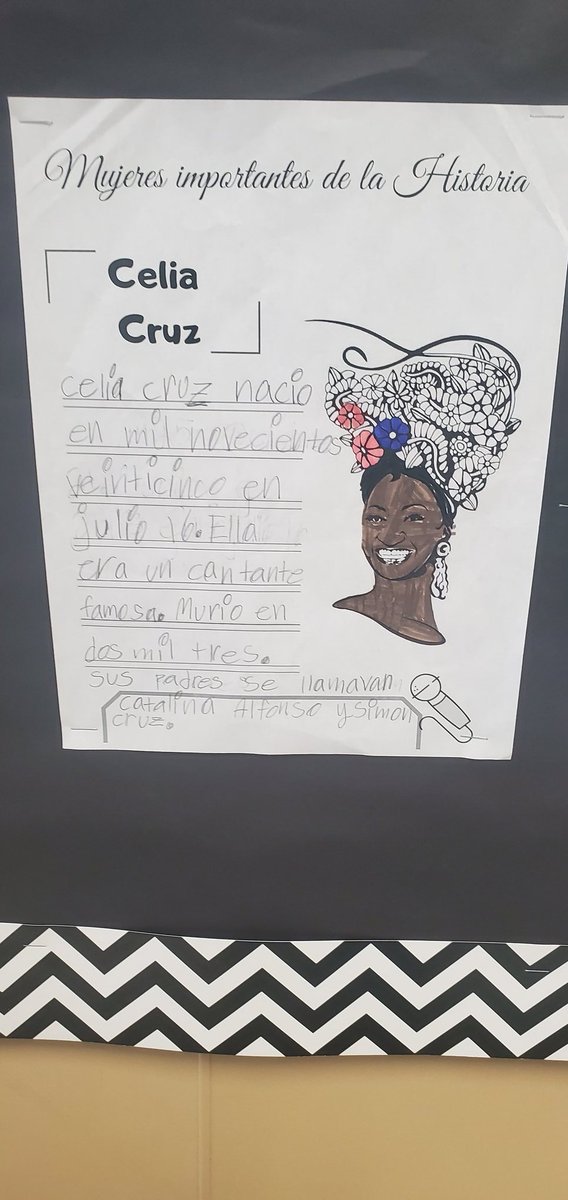 Mujeres importantes de la Historia
Celia
Cruz
celia cruz nacio
en mil novecientos
veinticinco en
julio 16. Ella
era un cantante
famosa. Murio en
dos mil tres.
sus padres se llamavan
catalina Alfonso y simon
cruz.